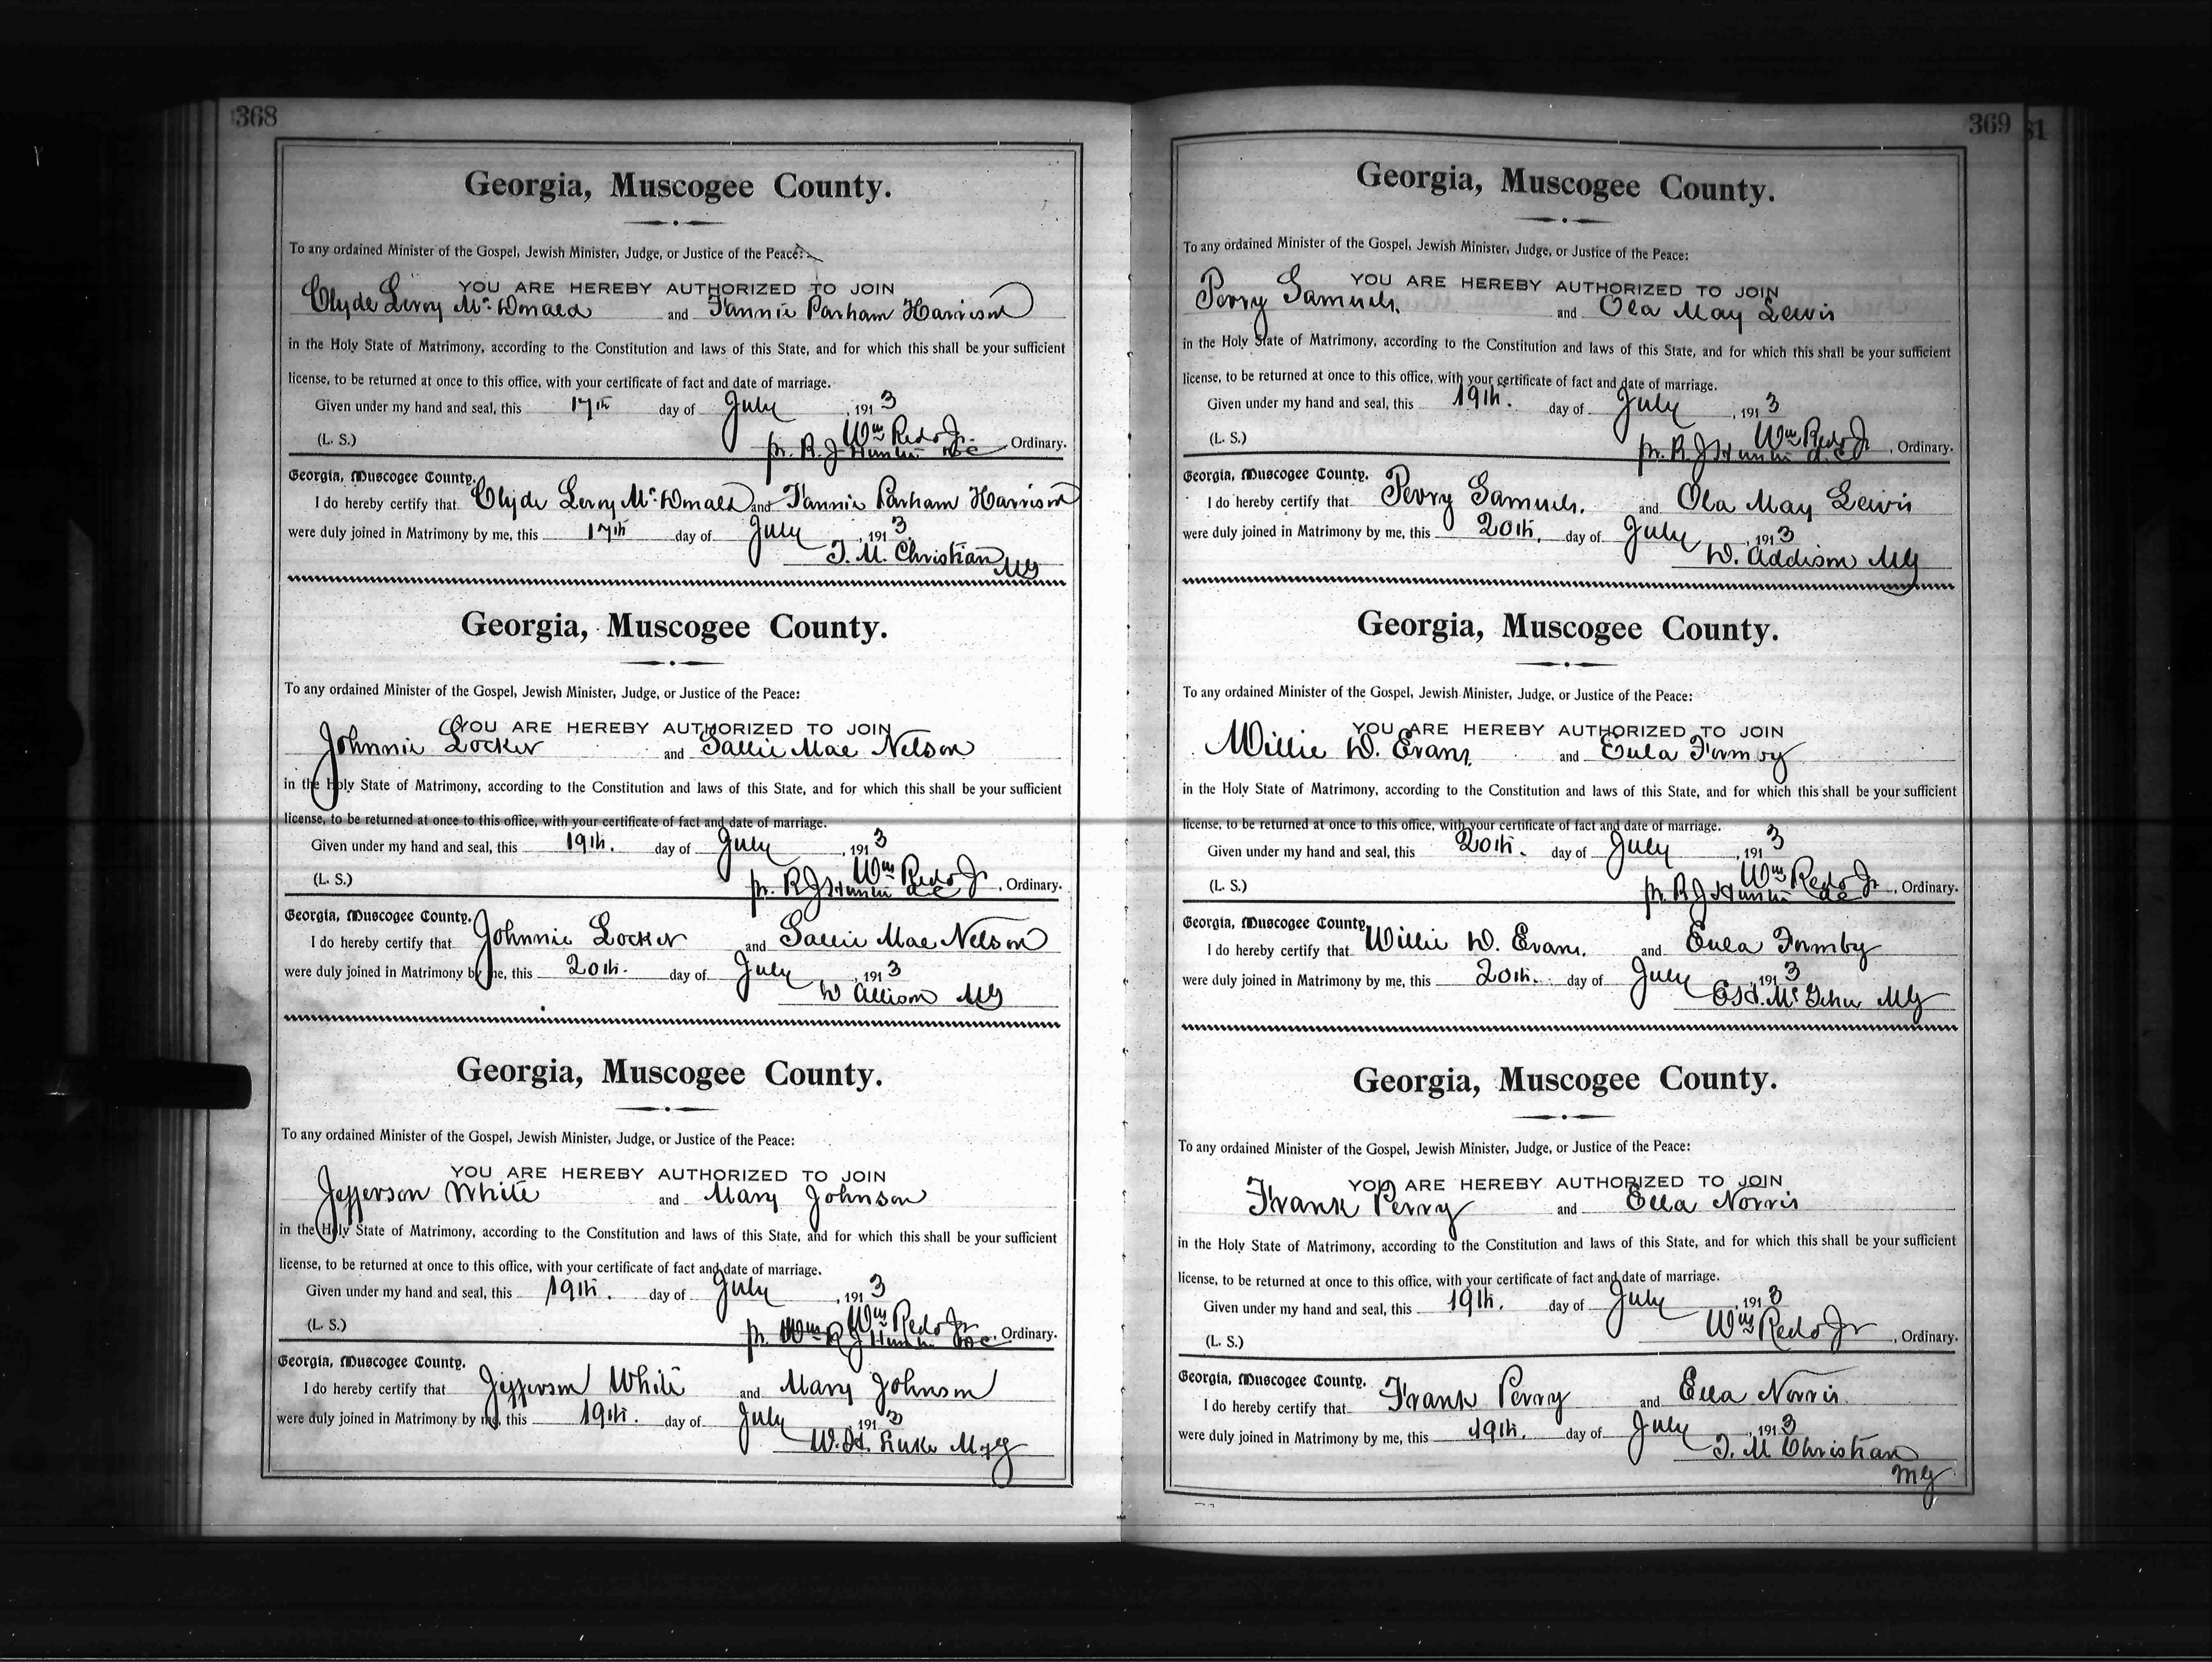 368
Georgia, Muscogee County.
To any ordained Minister of the Gospel, Jewish Minister, Judge, or Justice of the Peace:
YOU ARE HEREBY AUTHORIZED TO JOIN
Clyde Leroy McDonald and Fannie Parham Harrison
in the Holy State of Matrimony, according to the Constitution and laws of this State, and for which this shall be your sufficient
license, to be returned at once to this office, with your certificate of fact and date of marriage.
Given under my hand and seal, this 17th day of July, 1913
Wm Redd Jr.
(L. S.) pr. R. J. Hunter DC, Ordinary.
Georgia, Muscogee County.
I do hereby certify that Clyde Leroy McDonald and Fannie Parham Harrison
were duly joined in Matrimony by me, this 17th day of July, 1913.
T. M. Christian MG
Georgia, Muscogee County.
To any ordained Minister of the Gospel, Jewish Minister, Judge, or Justice of the Peace:
YOU ARE HEREBY AUTHORIZED TO JOIN
Johnnie Locker and Sallie Mae Nelson
in the Holy State of Matrimony, according to the Constitution and laws of this State, and for which this shall be your sufficient
license, to be returned at once to this office, with your certificate of fact and date of marriage.
Given under my hand and seal, this 19th. day of July, 1913
Wm Redd Jr
(L. S.) pr. R J Hunter DC, Ordinary.
Georgia, Muscogee County.
I do hereby certify that Johnnie Locker and Sallie Mae Nelson
were duly joined in Matrimony by me, this 20th. day of July, 1913
W Allison MG
Georgia, Muscogee County.
To any ordained Minister of the Gospel, Jewish Minister, Judge, or Justice of the Peace:
YOU ARE HEREBY AUTHORIZED TO JOIN
Jefferson White and Mary Johnson
in the Holy State of Matrimony, according to the Constitution and laws of this State, and for which this shall be your sufficient
license, to be returned at once to this office, with your certificate of fact and date of marriage.
Given under my hand and seal, this 19th. day of July, 1913
Wm Redd Jr
(L. S.) pr. R J Hunter DC, Ordinary.
Georgia, Muscogee County.
I do hereby certify that Jefferson White and Mary Johnson
were duly joined in Matrimony by me, this 19th. day of July, 1913
W. H. MG
369
31
Georgia, Muscogee County.
To any ordained Minister of the Gospel, Jewish Minister, Judge, or Justice of the Peace:
YOU ARE HEREBY AUTHORIZED TO JOIN
Perry Samuels. and Ola May Lewis
in the Holy State of Matrimony, according to the Constitution and laws of this State, and for which this shall be your sufficient
license, to be returned at once to this office, with your certificate of fact and date of marriage.
Given under my hand and seal, this 19th. day of July, 1913
Wm Redd Jr
(L. S.) pr. R J Hunter DC, Ordinary.
Georgia, Muscogee County.
I do hereby certify that Perry Samuels. and Ola May Lewis
were duly joined in Matrimony by me, this 20th. day of July, 1913
W. Addison MG
Georgia, Muscogee County.
To any ordained Minister of the Gospel, Jewish Minister, Judge, or Justice of the Peace:
YOU ARE HEREBY AUTHORIZED TO JOIN
Willie W. Evans, and Eula Formby
in the Holy State of Matrimony, according to the Constitution and laws of this State, and for which this shall be your sufficient
license, to be returned at once to this office, with your certificate of fact and date of marriage.
Given under my hand and seal, this 20th. day of July, 1913
Wm Redd Jr
(L. S.) pr. R J Hunter DC, Ordinary.
Georgia, Muscogee County,
I do hereby certify that Willie W. Evans. and Eula Formby
were duly joined in Matrimony by me, this 20th. day of July, 1913
McGehee MG
Georgia, Muscogee County.
To any ordained Minister of the Gospel, Jewish Minister, Judge, or Justice of the Peace:
YOU ARE HEREBY AUTHORIZED TO JOIN
Frank Perry and Ella Norris
in the Holy State of Matrimony, according to the Constitution and laws of this State, and for which this shall be your sufficient
license, to be returned at once to this office, with your certificate of fact and date of marriage.
Given under my hand and seal, this 19th. day of July, 1913
Wm Redd Jr, Ordinary.
(L. S.)
Georgia, Muscogee County.
I do hereby certify that Frank Perry and Ella Norris.
were duly joined in Matrimony by me, this 19th. day of July, 1913
T. M Christian
MG